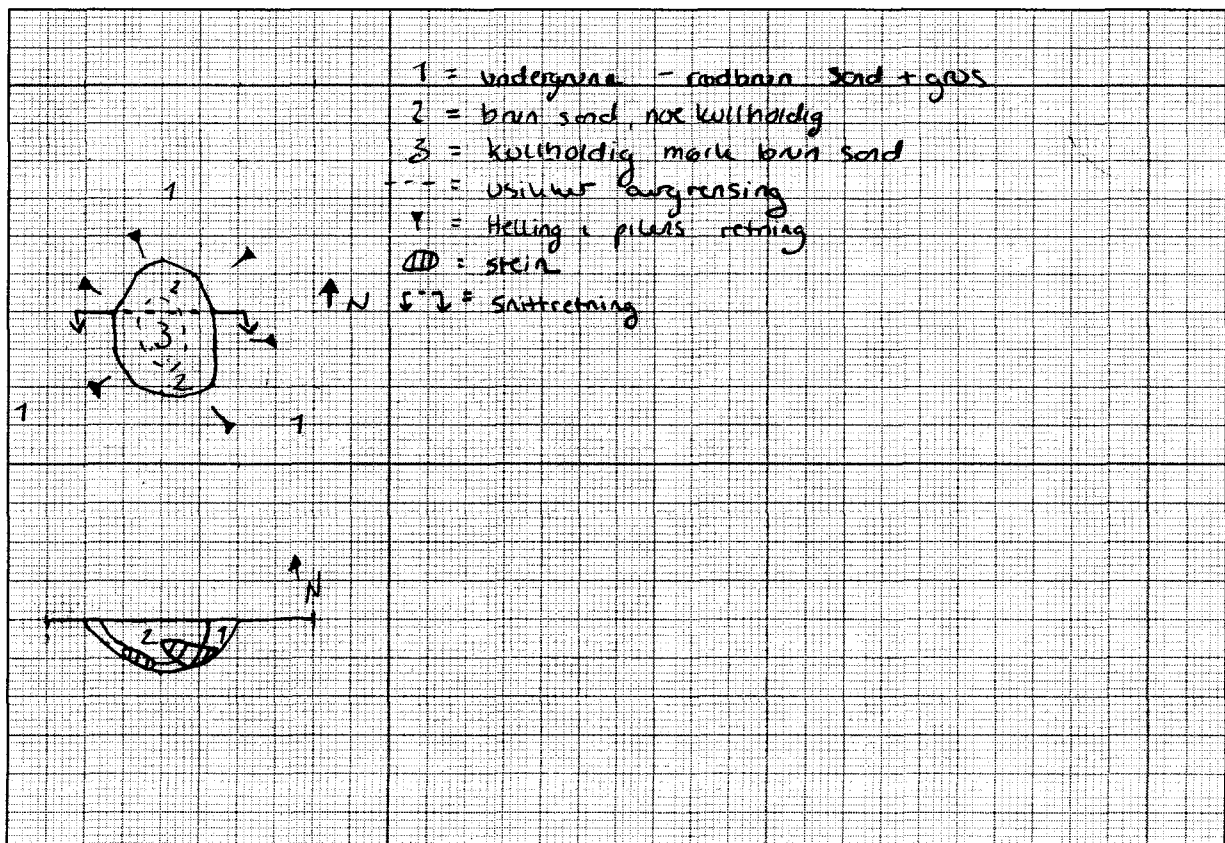 1 = undergrunn - rødbrun sand + grus
2 = brun sand, noe kullholdig
3 = kullholdig mørk brun sand
--- = usikker avgrensing
▼ = Helling i pilens retning
= stein
= snittretning
N
1
2
3
2
1
1
N
2
1